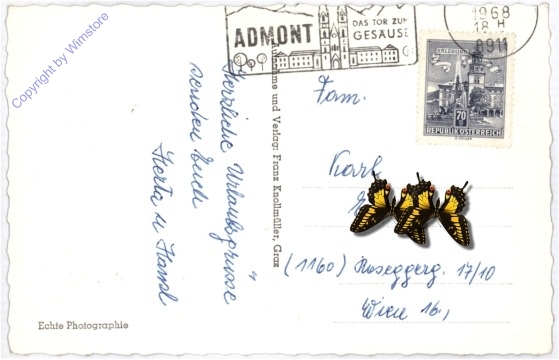 Copyright by Wimstore
ADMONT
DAS TOR ZUM
GESÄUSE
1968
18 H
8911
SALZBURG
70
REPUBLIK ÖSTERREICH
Herzliche Urlaubsgrüsse
senden Euch
Herta u Hansl
Aufnahme und Verlag: Franz Knollmüller, Graz
Fam.
Karl
(1160) Roseggerg. 17/10
Wien 16,
Echte Photographie